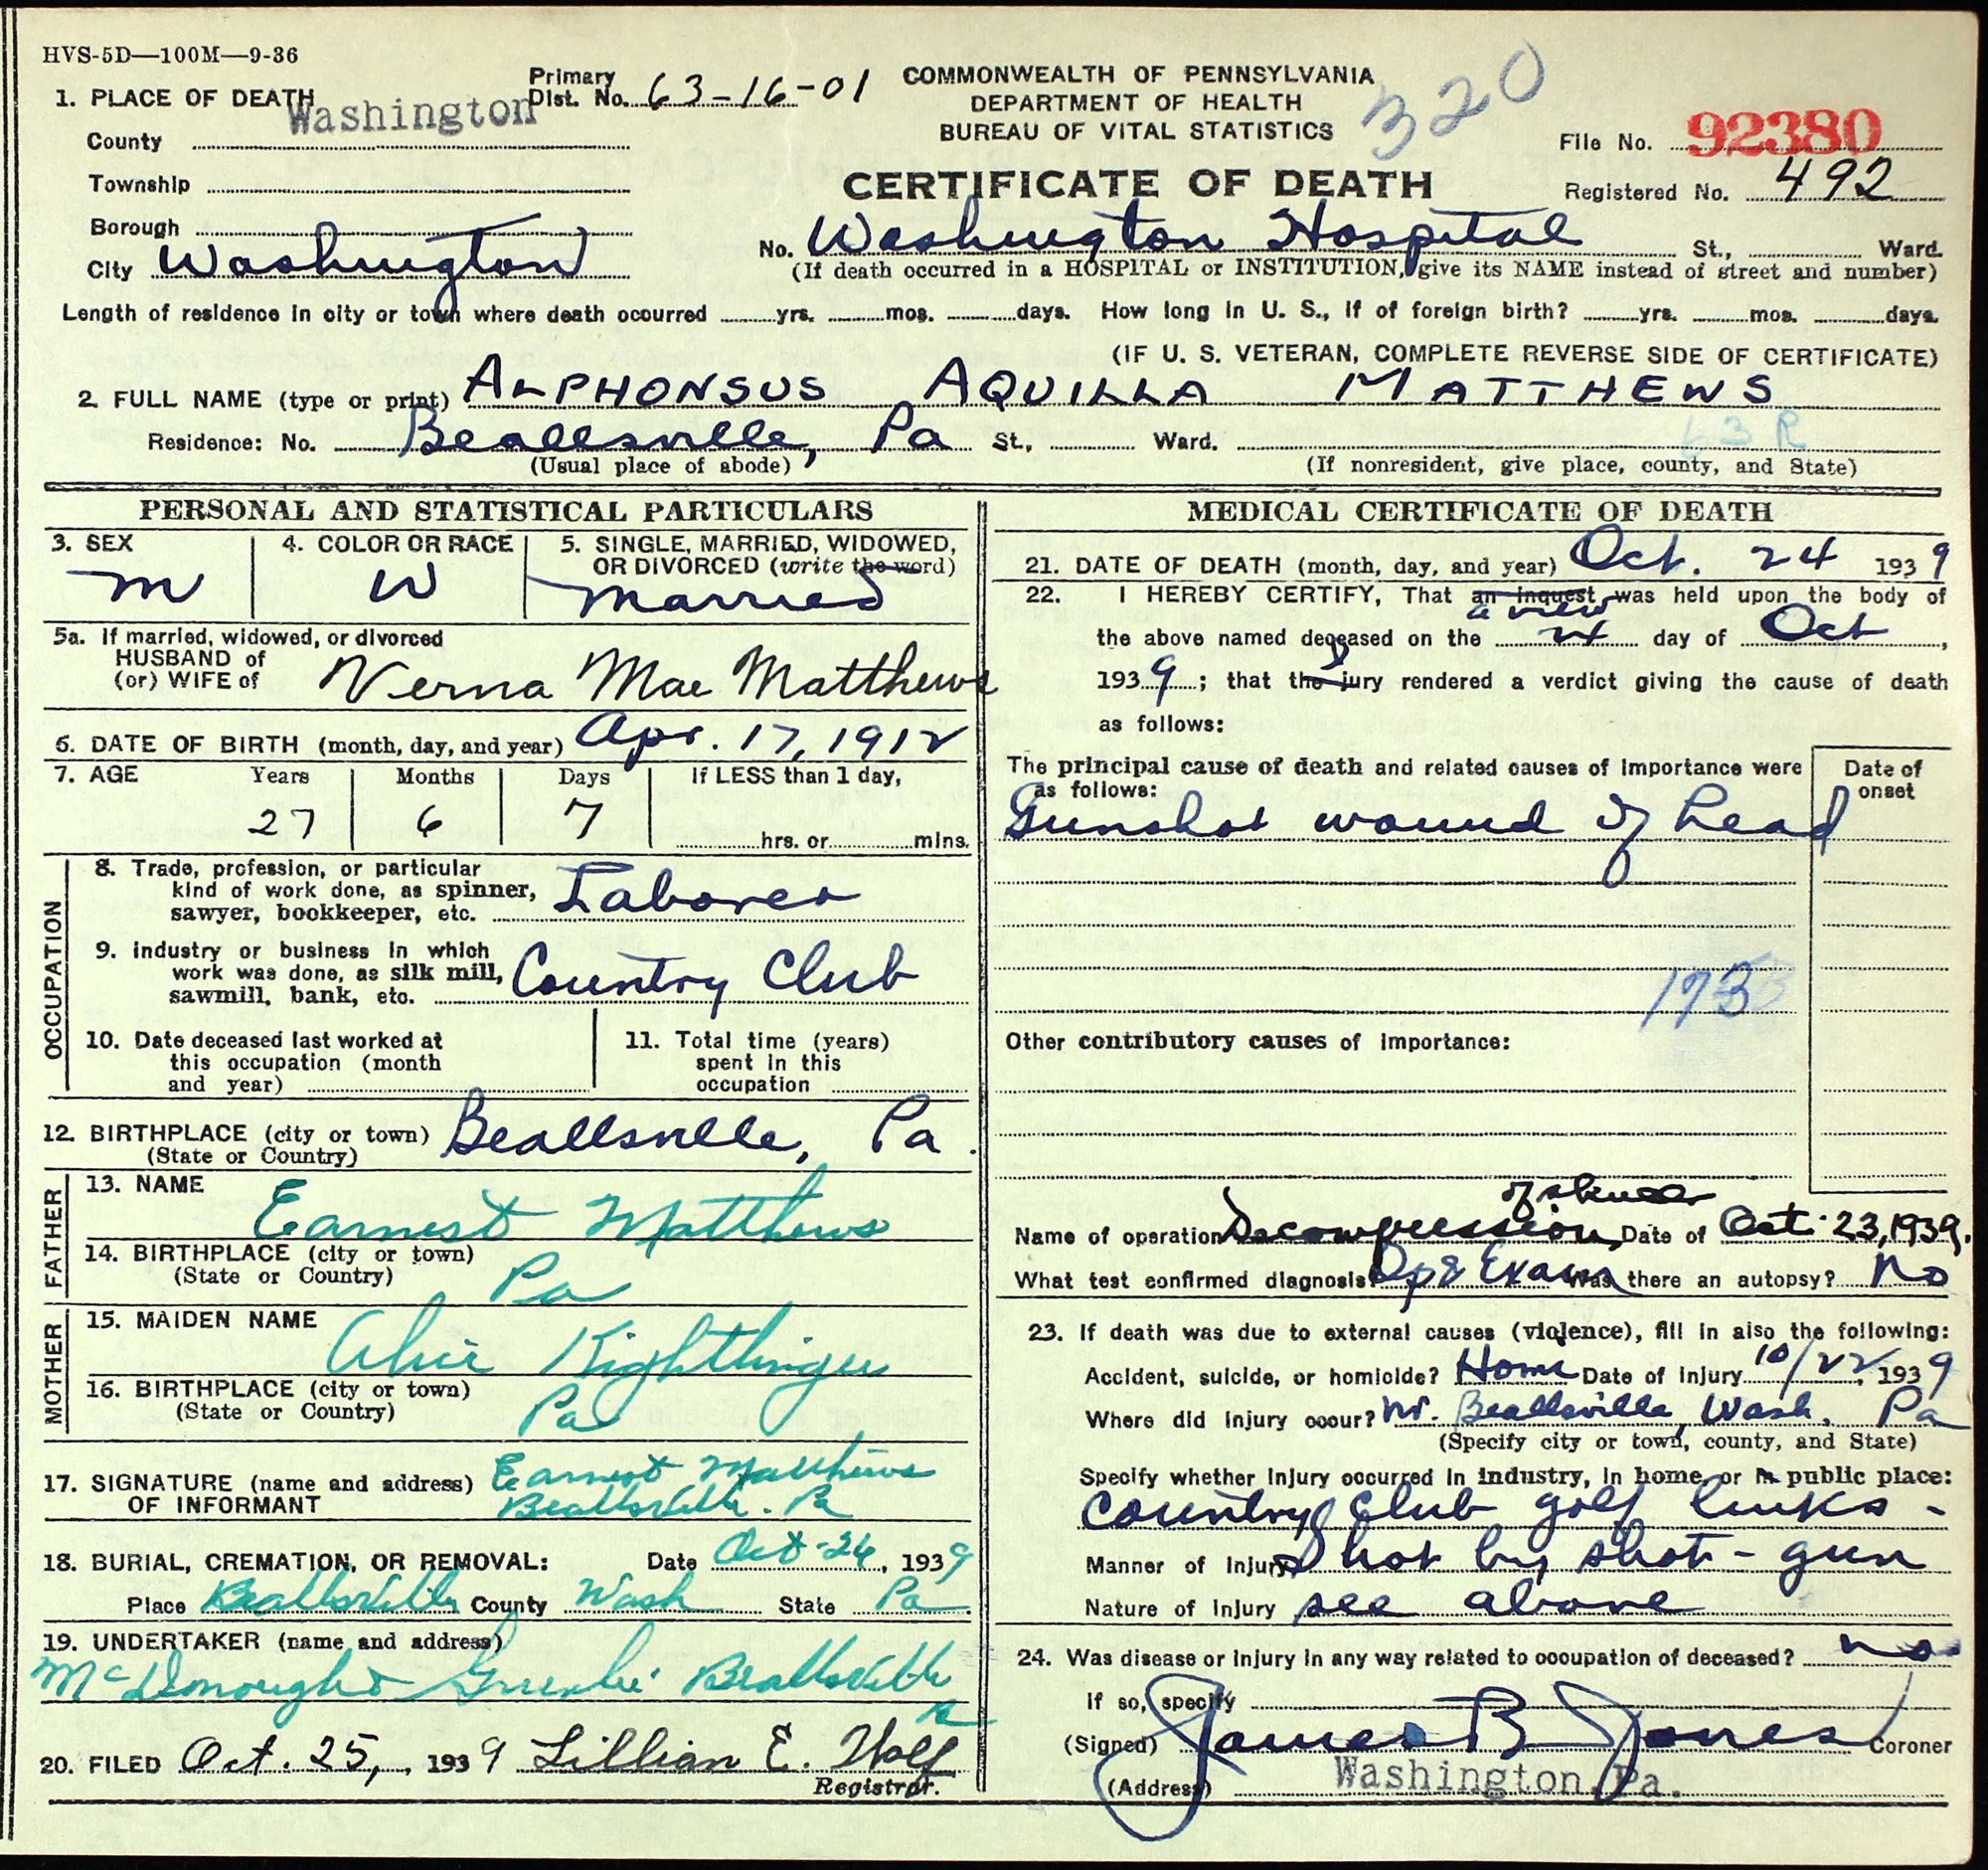 HVS-5D—100M—9-36
1. PLACE OF DEATH
Washington
Primary
Dist. No. 63-16-01
COMMONWEALTH OF PENNSYLVANIA
DEPARTMENT OF HEALTH
BUREAU OF VITAL STATISTICS
320
CERTIFICATE OF DEATH
File No. 92380
Registered No. 492
County
Township
Borough
City Washington
No. Washington Hospital St., Ward.
(If death occurred in a HOSPITAL or INSTITUTION, give its NAME instead of street and number)
Length of residence in city or town where death occurred yrs. mos. days. How long in U. S., if of foreign birth? yrs. mos. days.
(IF U. S. VETERAN, COMPLETE REVERSE SIDE OF CERTIFICATE)
2. FULL NAME (type or print) ALPHONSUS AQUILLA MATTHEWS
63 R
Residence: No. Beallsville, Pa St., Ward.
(Usual place of abode)
(If nonresident, give place, county, and State)
PERSONAL AND STATISTICAL PARTICULARS
3. SEX
M
4. COLOR OR RACE
W
5. SINGLE, MARRIED, WIDOWED,
OR DIVORCED (write the word)
Married
5a. If married, widowed, or divorced
HUSBAND of
(or) WIFE of
Verna Mae Matthews
6. DATE OF BIRTH (month, day, and year) Apr. 17, 1912
7. AGE
Years Months Days If LESS than 1 day,
27 6 7 hrs. or mins.
OCCUPATION
8. Trade, profession, or particular
kind of work done, as spinner,
sawyer, bookkeeper, etc. Laborer
9. Industry or business in which
work was done, as silk mill,
sawmill, bank, etc. Country Club
10. Date deceased last worked at
this occupation (month
and year)
11. Total time (years)
spent in this
occupation
12. BIRTHPLACE (city or town) Beallsville, Pa.
(State or Country)
FATHER
13. NAME
Earnest Matthews
14. BIRTHPLACE (city or town)
(State or Country) Pa
MOTHER
15. MAIDEN NAME
Alice Rightlinger
16. BIRTHPLACE (city or town)
(State or Country) Pa
17. SIGNATURE (name and address) Earnest Matthews
OF INFORMANT Beallsville. Pa
18. BURIAL, CREMATION, OR REMOVAL: Date Oct-26, 1939
Place Beallsville County Wash State Pa.
19. UNDERTAKER (name and address)
McDonough & Greenlee Beallsville
Pa
20. FILED Oct. 25, 1939 Lillian E. Wolf
Registrar.
MEDICAL CERTIFICATE OF DEATH
21. DATE OF DEATH (month, day, and year) Oct. 24 1939
22. I HEREBY CERTIFY, That an inquest was held upon the body of
a view
the above named deceased on the 24 day of Oct,
1939; that the jury rendered a verdict giving the cause of death
as follows:
The principal cause of death and related causes of importance were
as follows:
Date of
onset
Gunshot wound of head
173
Other contributory causes of importance:
of skull
Name of operation Decompression, Date of Oct. 23, 1939.
What test confirmed diagnosis? Op & Exam Was there an autopsy? No
23. If death was due to external causes (violence), fill in also the following:
Accident, suicide, or homicide? Homi Date of injury 10/22, 1939
Where did injury occur? nr. Beallsville, Wash. Pa
(Specify city or town, county, and State)
Specify whether injury occurred in industry, in home, or in public place:
Country Club golf links -
Manner of Injury Shot by shot-gun
Nature of Injury see above
24. Was disease or injury in any way related to occupation of deceased? no
If so, specify
(Signed) James B Jones Coroner
(Address) Washington, Pa.